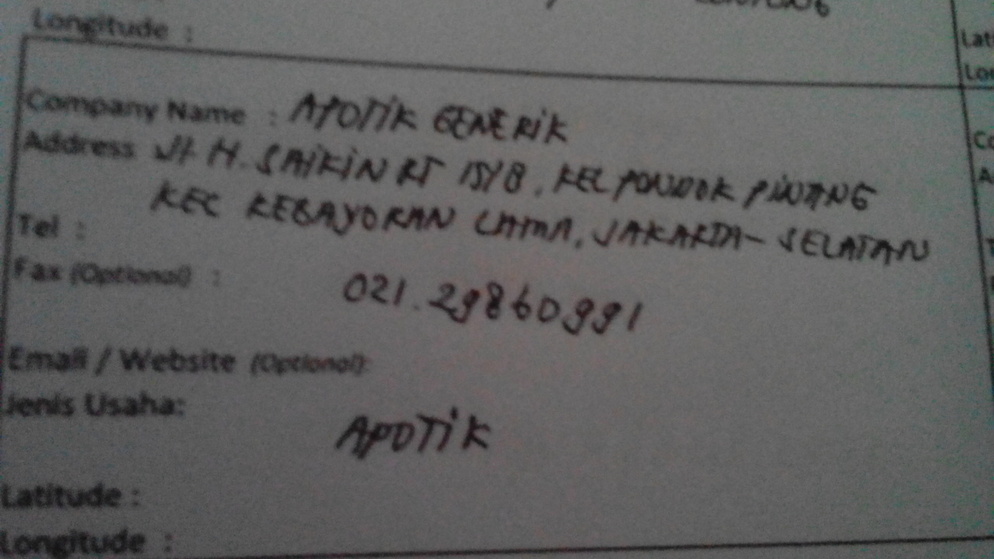 Longitude :
Company Name : APOTIK GENERIK
Address Jl. H. SAIKIN RT 15/8, KEL PONDOK PINANG
KEC KEBAYORAN LAMA, JAKARTA - SELATAN
Tel :
Fax (Optional) :
021.29860991
Email / Website (Optional):
Jenis Usaha:
APOTIK
Latitude :
Longitude :